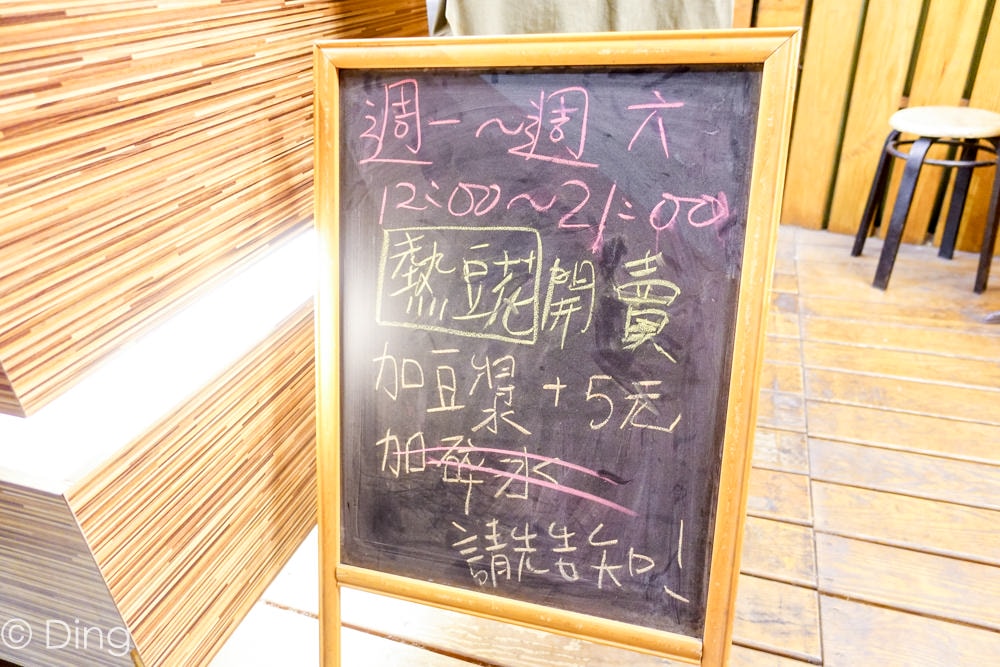 週一～週六
12:00～21:00
熱豆花開賣
加豆漿+5元
加碎冰
請先告知!
© Ding